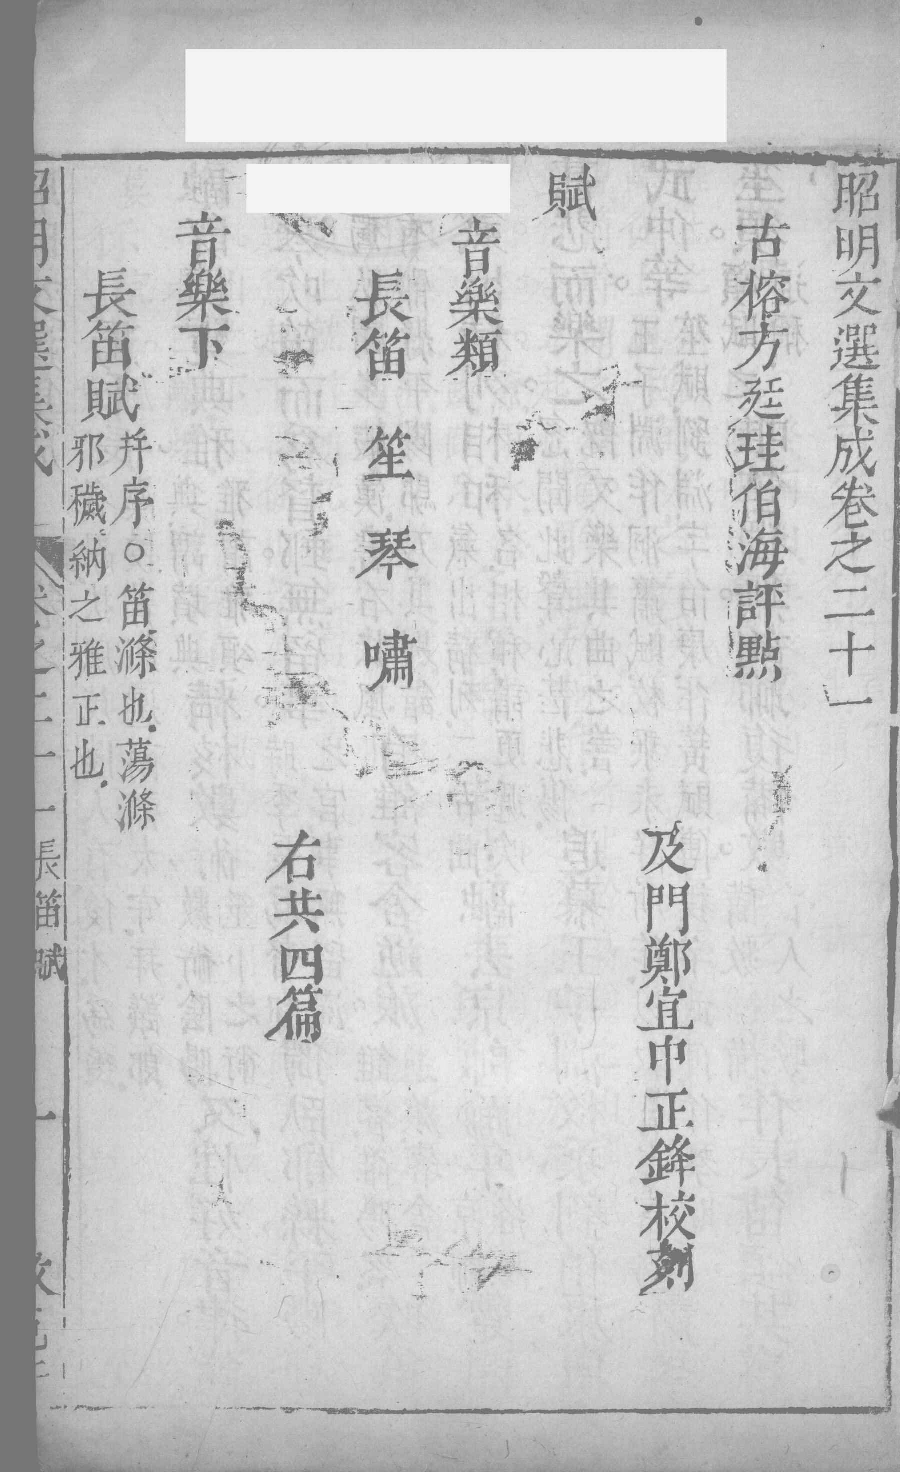 昭明文選集成卷之二十一
古榕方廷珪伯海評點
及門鄭宜中正鋒校刻
賦
音樂類
長笛 笙 琴 嘯
右共四篇
音樂下
長笛賦
幷序○笛滌也蕩滌
邪穢納之雅正也
昭明文選集成 卷之二十一 長笛賦 一